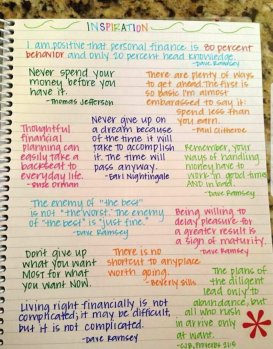 INSPIRATION
I am positive that personal finance is 80 percent
behavior and only 20 percent head knowledge.
-Dave Ramsey
Never spend your
money before you
have it.
-Thomas Jefferson
There are plenty of ways
to get ahead. The first is
so basic I'm almost
embarassed to say it:
spend less than
you earn.
-Paul Clitheroe
Thoughtful
financial
planning can
easily take a
backseat to
everyday life.
-Suze Orman
Never give up on
a dream because
of the time it will
take to accomplish
it. The time will
pass anyway.
-Earl Nightingale
Remember, your
ways of handling
money have to
work in good time
AND in bad.
-Dave Ramsey
The enemy of "the best"
is not "the worst." The enemy
of "the best" is "just fine."
-Dave Ramsey
Being willing to
delay pleasure for
a greater result is
a sign of maturity.
-Dave Ramsey
Don't give up
what you want
most for what
you want now.
There is no
shortcut to anyplace
worth going.
-Beverly Sills
The plans of
the diligent
lead only to
abundance, but
all who rush
in arrive only
at want.
Proverbs 21:5
Living right financially is not
complicated; it may be difficult,
but it is not complicated.
-Dave Ramsey